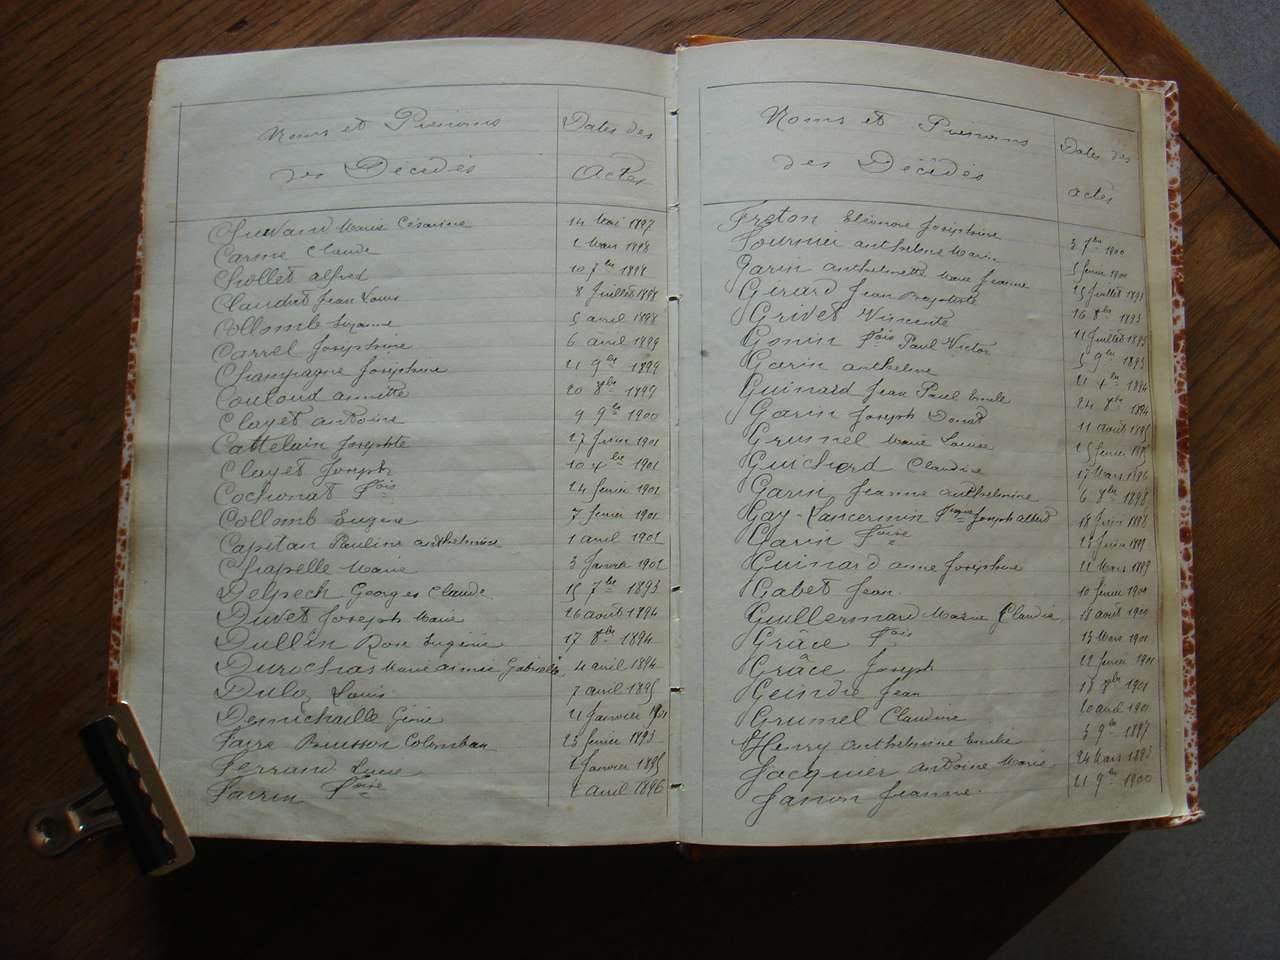 Noms et Prénoms
des Décédés
Dates des
Actes
Marie Césarine 14 Mai 1897
Carme Claude Mars 1898
Chollet alfred 10 7bre
Claudat Jean Louis 8 Juillet 1898
Collomb Suzanne 5 avril 1898
Carrel Joséphine 6 avril 1899
Champagne Joséphine 9bre 1899
Couloud annette 20 8bre 1899
Clayet antoine 9 9bre 1900
Cattelain Josephte 27 1901
Clayet Joseph 10 1901
Cochonat fois 24 fevrier 1901
Collomb Eugène 7 fevrier 1901
Capitan Pauline anthelmine 1 avril 1901
Chapelle Marie 3 Janvier 1901
Delpech Georges Claude 15 7bre 1893
Duvet Joseph Marie 26 août 1894
Dullin Rose Eugénie 17 8bre 1894
Durochas Marie aimée Gabrielle 4 avril 1894
Dulog Louis 7 avril 1895
Demichaille 21 Janvier 1901
Favre Buisson Colomban 23 fevrier 1893
Ferrand Lucie Janvier 1895
Farrin foise avril 1896
Noms et Prénoms
des Décédés
Dates des
actes
Freton Eléonore Joséphine 3 7bre 1900
Fournier anthelme Marie 5 fevrier 1901
Garin anthelmette Marie Jeanne 25 Juillet 1893
Gérard Jean Baptiste 16 8bre 1893
Grivet Vincente 11 Juillet 1893
Gonin fois Paul Victor 5 9bre 1893
Garin anthelme 1894
Guinard Jean Paul Emile 24 8bre 1894
Garin Joseph Donat 11 août 1895
Grumel Marie Louise 25 fevrier 1895
Guichard Claudine 17 Mars 1896
Garin Jeanne anthelmine 6 8bre 1898
Gay-Lancermin Joseph albert 18 1898
Garin foise 1899
Guinard anne Joséphine Mars 1899
Gabet Jean 10 fevrier 1900
Guillermard Marie Claudine 18 août 1900
Grâce fois 13 Mars 1901
Grâce Joseph 22 fevrier 1901
Geindre Jean 1901
Grumel Claudine avril 1901
Henry anthelmine Emélie 3 9bre 1897
Jacquier antoine Marie 24 Mars 1893
Janon Jeanne 21 9bre 1900